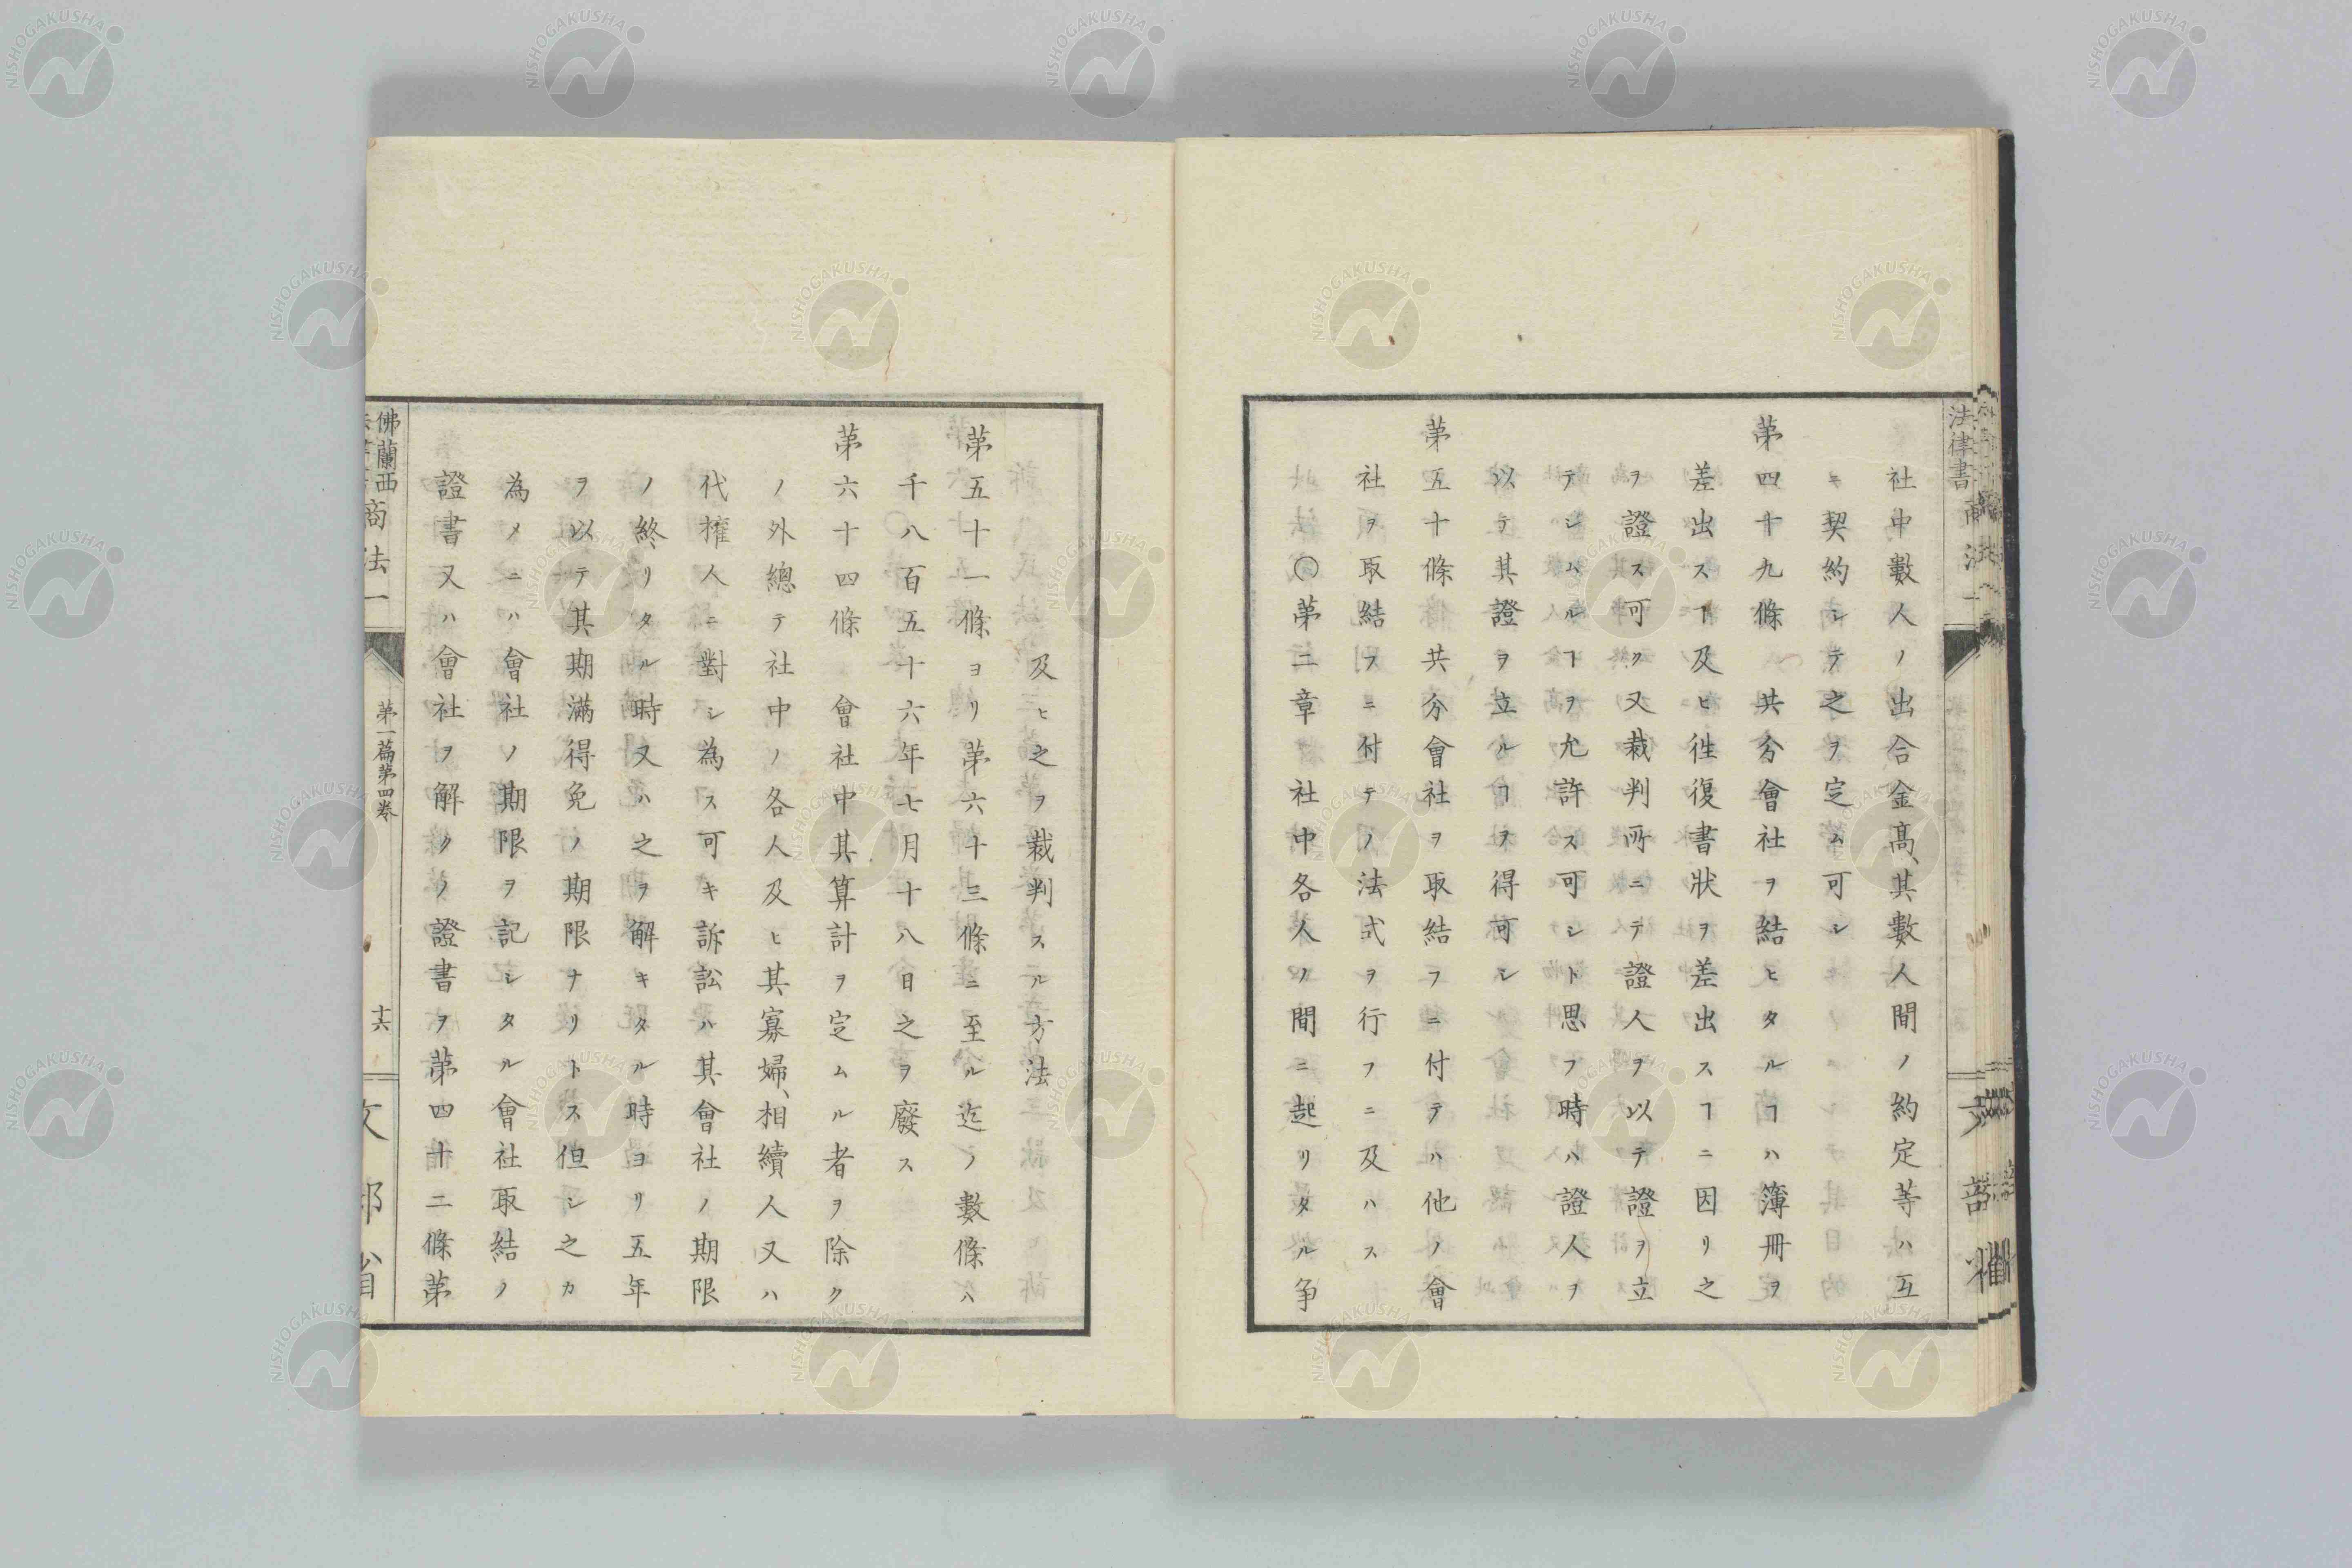 社中數人ノ出合金髙、其數人間ノ約定等ハ互
ニ契約シテ之ヲ定ム可シ
第四十九條　共分會社ヲ結ヒタルヿハ簿冊ヲ
差出スヿ及ヒ徃復書狀ヲ差出スヿニ因リ之
ヲ證ス可ク又裁判所ニテ證人ヲ以テ證ヲ立
テシムルヿヲ允許ス可シト思フ時ハ證人ヲ
以テ其證ヲ立ルヿヲ得可シ
第五十條　共分會社ヲ取結フニ付テハ他ノ會
社ヲ取結フニ付テノ法式ヲ行フニ及ハス
〇第二章　社中各人ノ間ニ起リタル争
及ヒ之ヲ裁判スル方法
第五十一條ヨリ第六十三條ニ至ル迄ノ數條ハ
千八百五十六年七月十八日之ヲ廢ス
第六十四條　會社中其算計ヲ定ムル者ヲ除ク
ノ外總テ社中ノ各人及ヒ其寡婦、相續人又ハ
代權人ニ對シ為ス可キ訴訟ハ其會社ノ期限
ノ終リタル時又ハ之ヲ解キタル時ヨリ五年
ヲ以テ其期滿得免ノ期限ナリトス但シ之カ
為メニハ會社ノ期限ヲ記シタル會社取結ノ
證書又ハ會社ヲ解クノ證書ヲ第四十二條第
佛蘭西
商法一
第一篇第四卷
十六
文部省
法律書
NISHOGAKUSHA